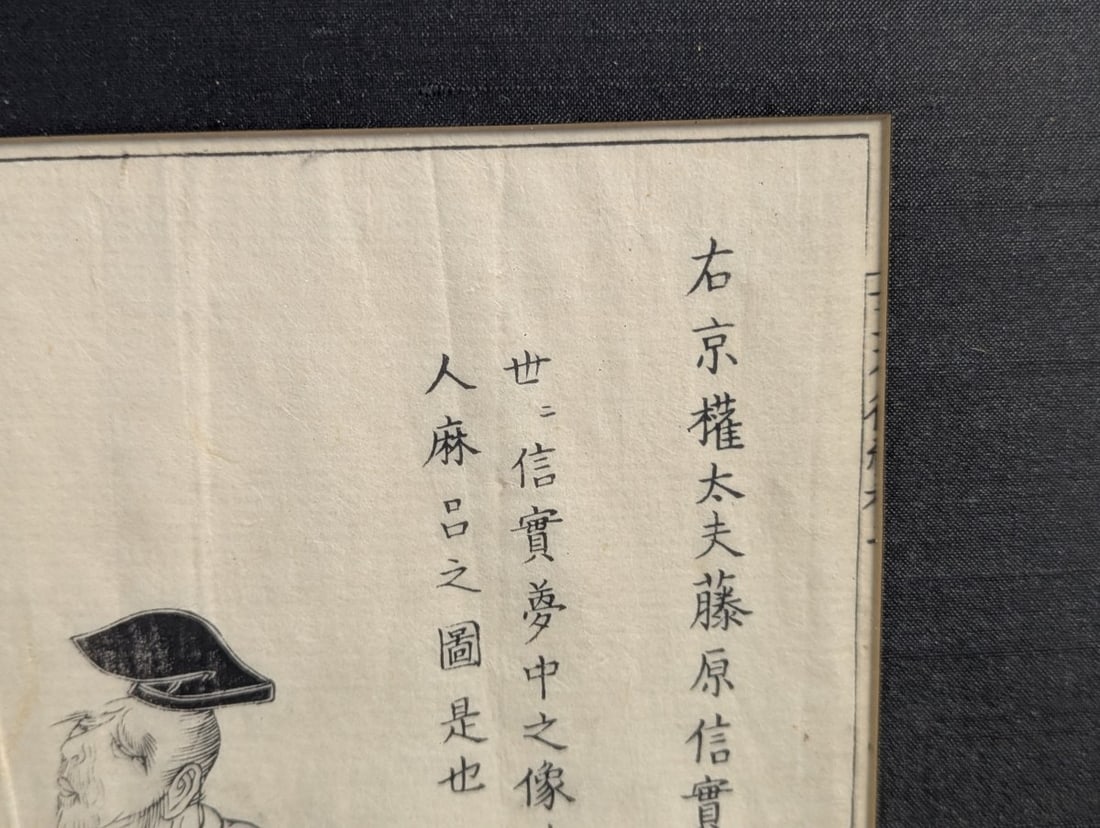 右京權太夫藤原信實
世ニ信實夢中之像
人麻呂之圖是也